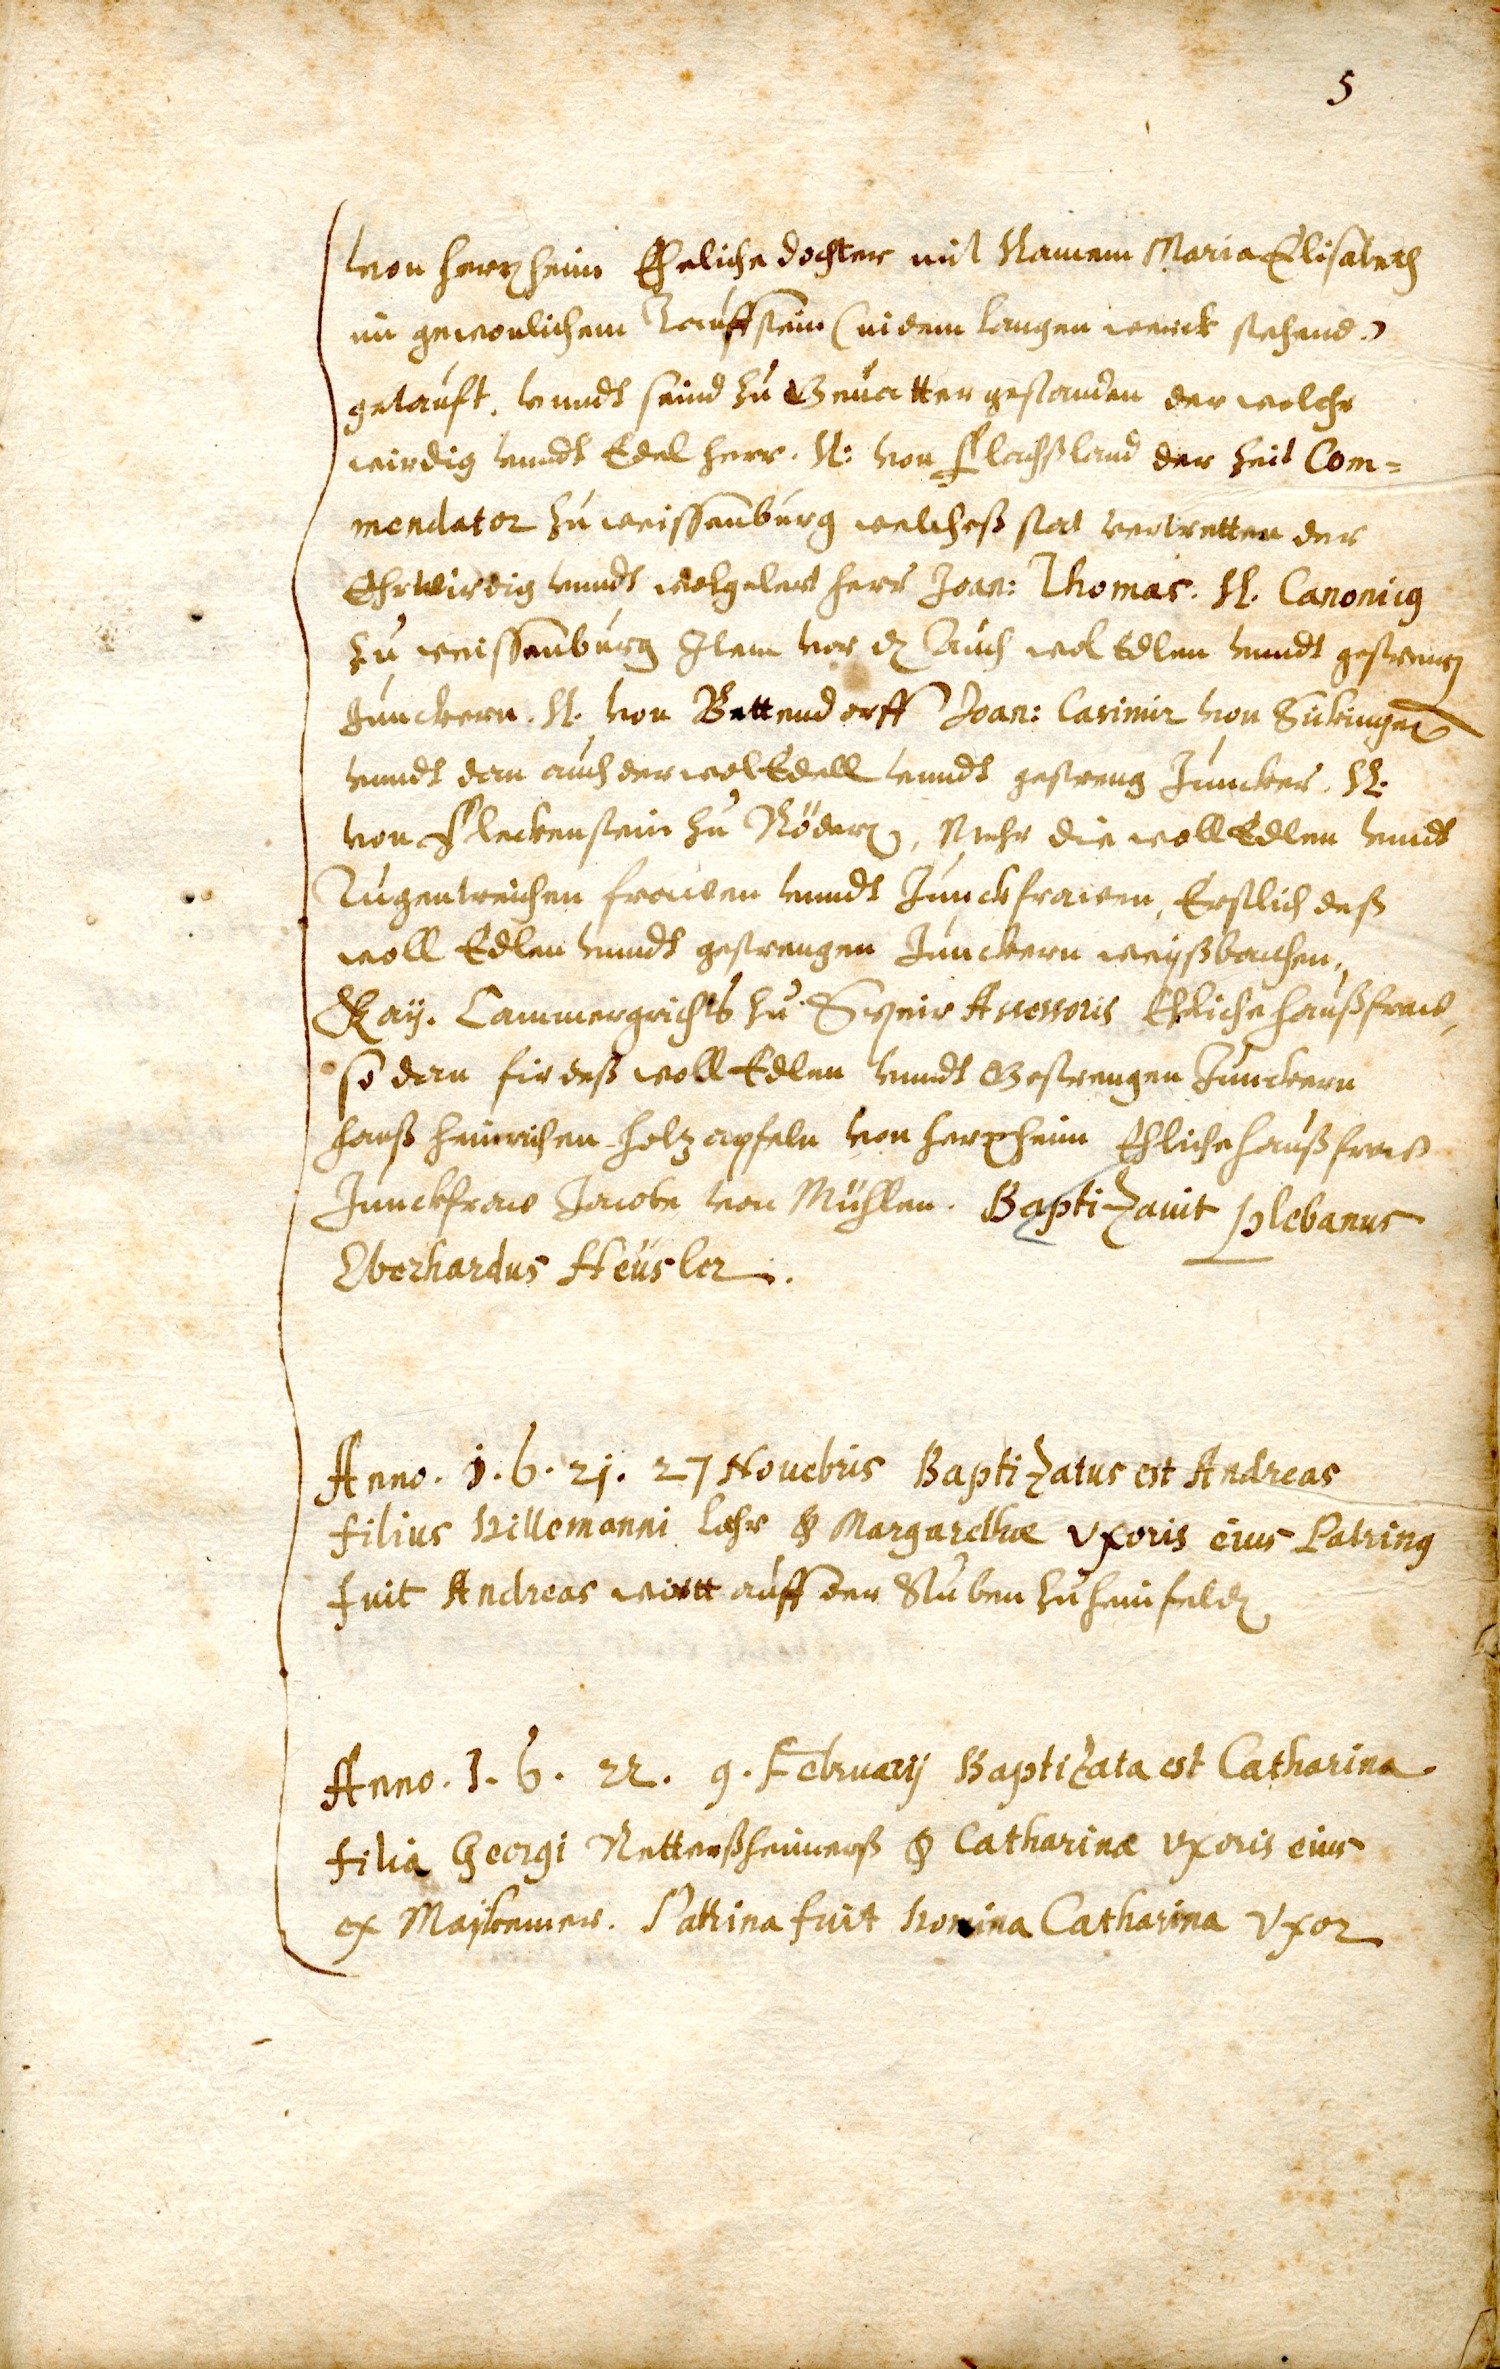 5
von Herxheim Eheliche dochter mit Namem Maria Elisabeth
im gewonlichem Tauffstein (in dem Langen werck stehend.)
getauft. vnndt seind zu Gevatter gestanden der wolehr
wirdig vnndt Edel herr. N: von Flachßland der Zeit Com=
mendator zu weissenburg welcheß stat vertretten der
Ehrwirdig vnndt wolgelert herr Joan: Thomas. N. Canonicus
zu weissenburg Item vor Auch wol Edlen vnndt gestreng
Junckern. N. von Bettendorff Joan: Casimir von Sickingen
vnndt dan auch der wol Edell vnndt gestreng Juncker. N.
von Fleckenstein zu Rödern, Mehr die woll Edlen vnndt
Tugentreichen frawen vnndt Junckfrawen, Erstlich deß
woll Edlen vnndt gestrengen Junckern weyßbachen,
Kay. Cammergrichts zu Speir Assessoris Ehliche haußfraw,
so dan fir deß woll Edlen vnndt Gestrengen Junckern
Hanß Heinrichen Holzapfeln von Herxheim Ehliche haußfraw
Junckfraw Jacobe von Mühlen. Baptizauit plebanus
Eberhardus Heüsler.
Anno. 1. 6. 21. 27 Nouebris Baptizatus est Andreas
filius Villemanni Lehr & Margarethæ vxoris eius Patrinus
fuit Andreas wirtt auff der Stuben zu Heinfeld
Anno. 1. 6. 22. 9. February Baptizata est Catharina
filia Georgi Nettersheimerß & Catharinæ vxoris eius
ex Maykemer. Pattrina fuit Catharina vxor